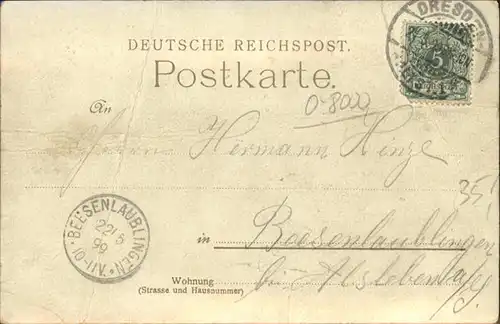 DRESDEN
DEUTSCHE REICHSPOST.
Postkarte.
5
An
0-8022
Herrn Hermann Hinze
35,-
BEESENLAUBLINGEN
22/5
99
10-11V.
in Beesenlaublingen
bei Alsleben
Wohnung
(Strasse und Hausnummer)